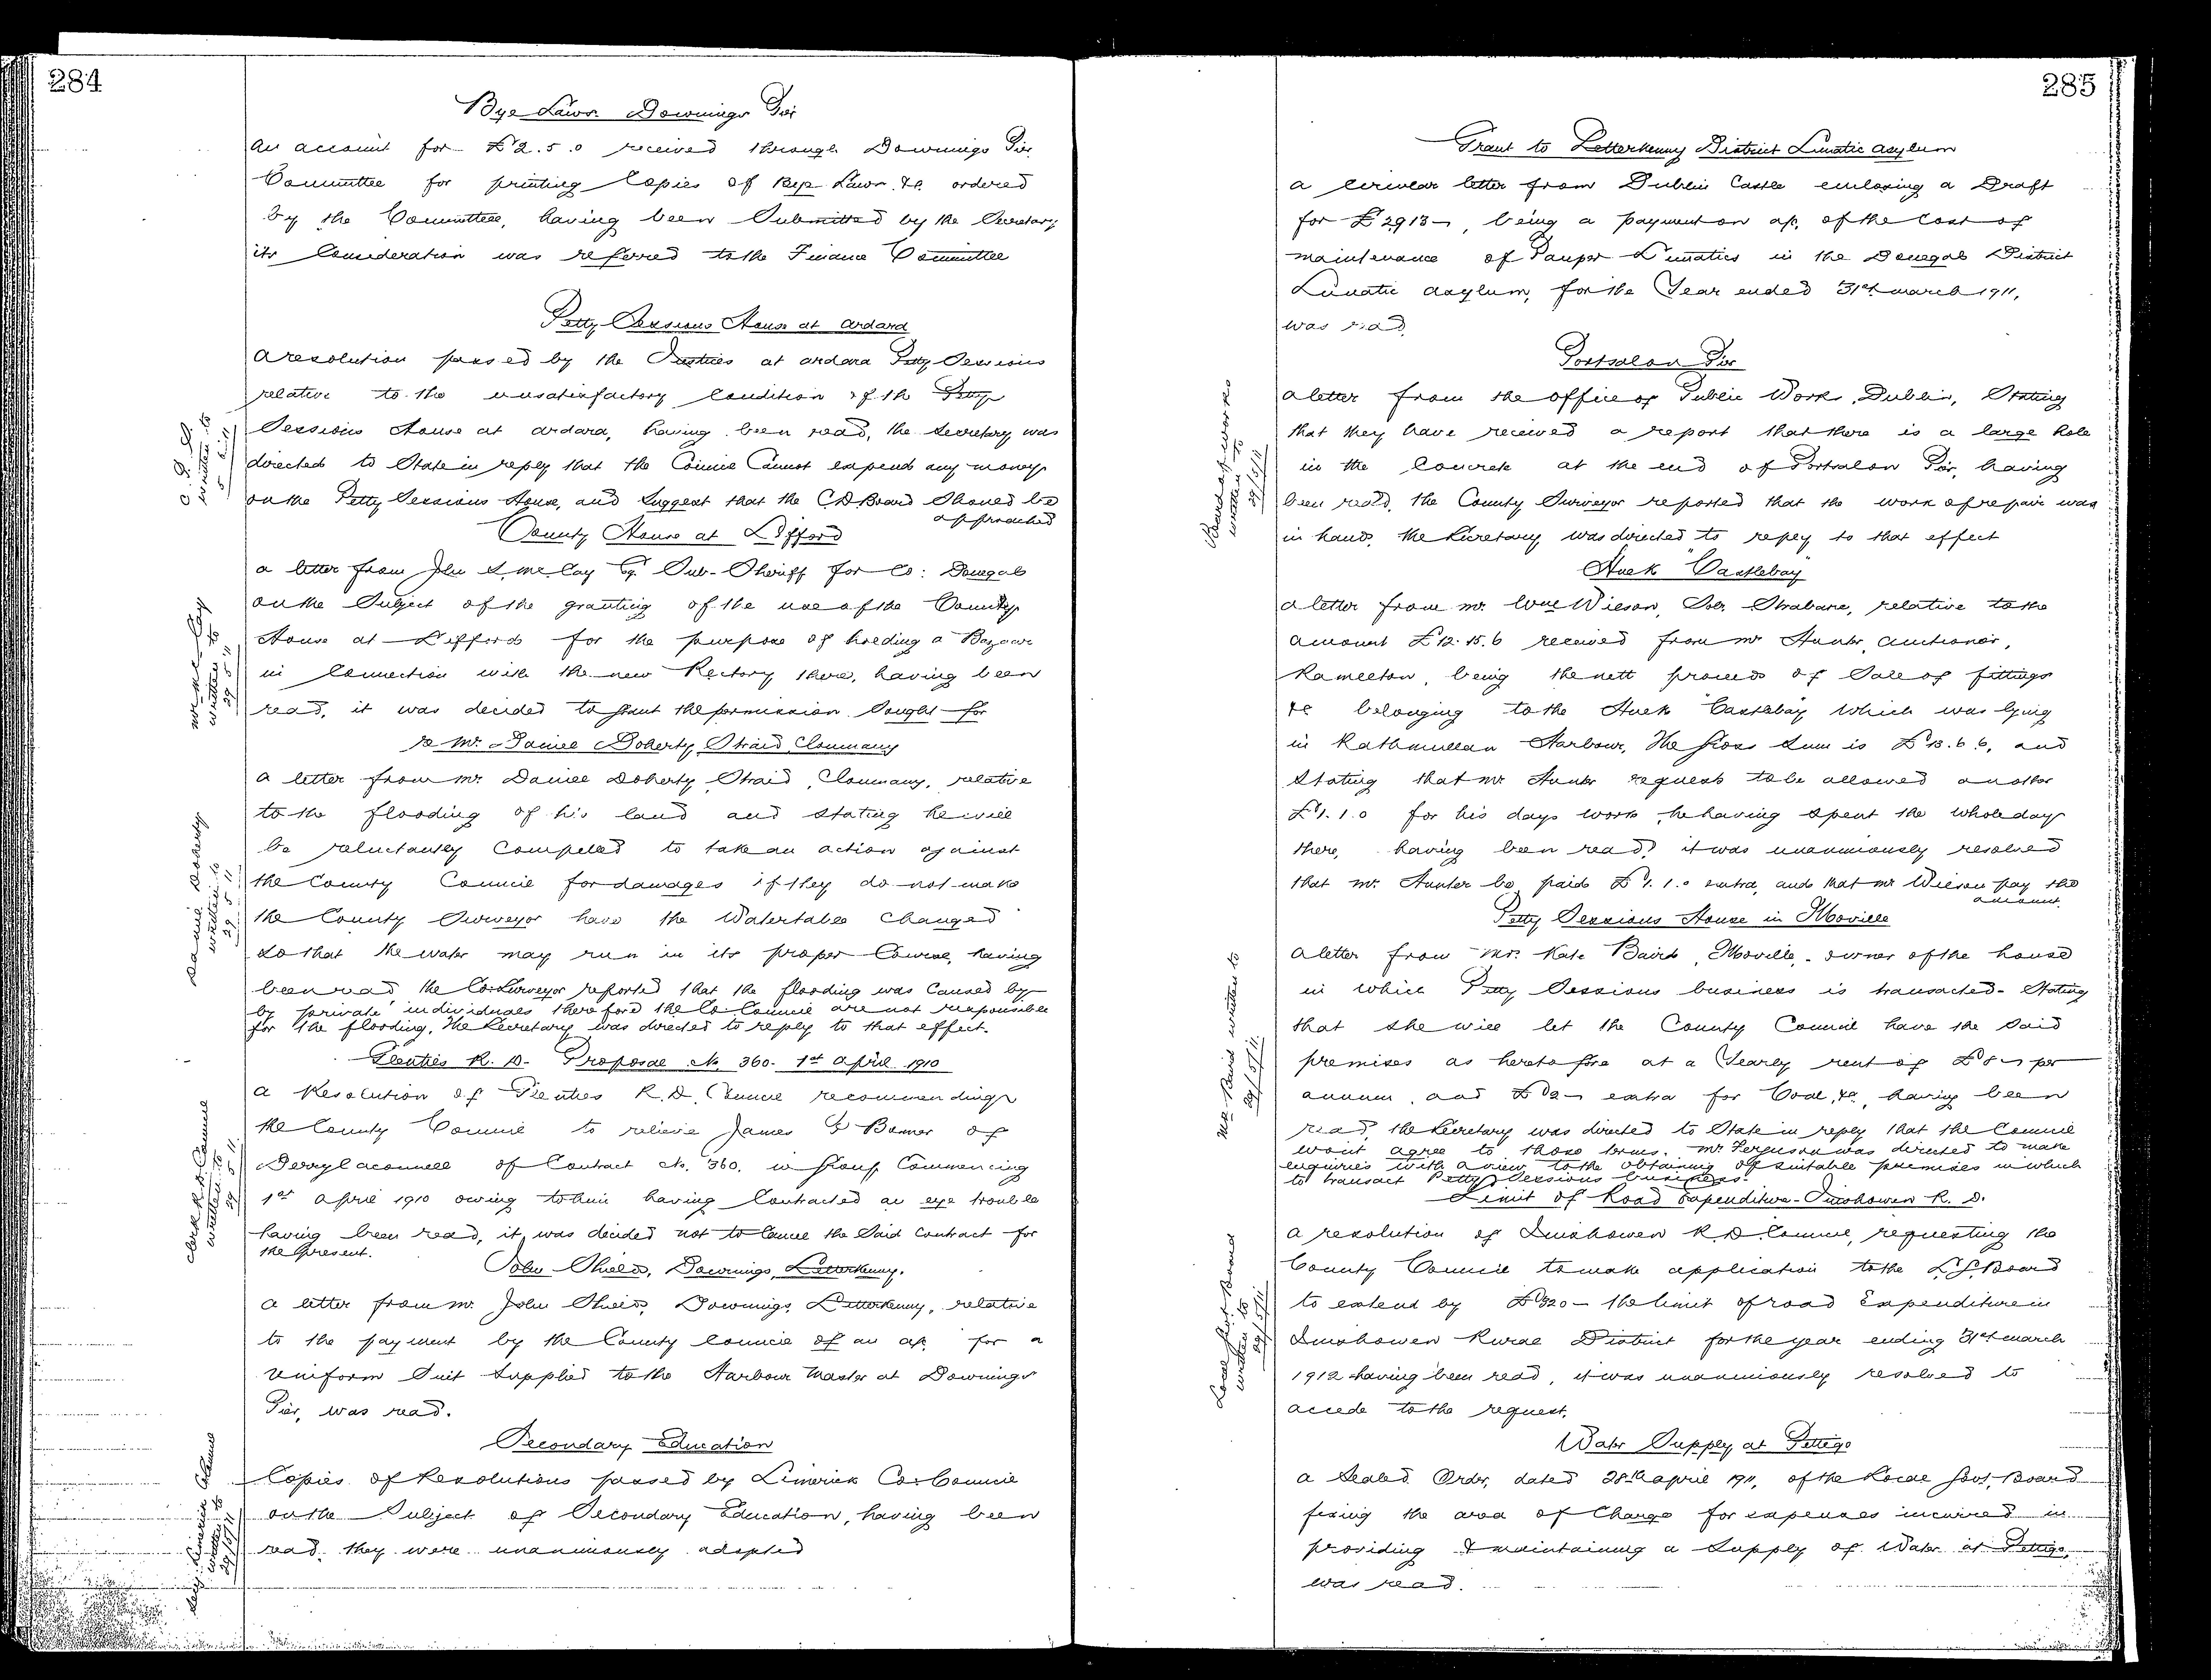 284
Bye Laws Downings Pier
An account for £2.5.0 received through Downings Pier
Committee for printing Copies of Bye Laws &c. ordered
by the Committee, having been Submitted by the Secretary
its Consideration was referred to the Finance Committee
Petty Sessions House at Ardara
A resolution passed by the Justices at Ardara Petty Sessions
relative to the unsatisfactory Condition of the Petty
Sessions House at Ardara, having been read, the Secretary was
directed to State in reply that the Council Cannot expend any money
on the Petty Sessions House, and Suggest that the C.D. Board Should be
approached
County House at Lifford
a letter from John S. McCay Esq. Sub-Sheriff for Co: Donegal
on the Subject of the granting of the use of the County
House at Lifford for the purpose of holding a Bazaar
in Connection with the new Rectory there, having been
read, it was decided to grant the permission Sought for
re Mr. Daniel Doherty, Straid, Clonmany
a letter from Mr. Daniel Doherty, Straid, Clonmany, relative
to the flooding of his land and stating he will
be reluctantly Compelled to take an action against
the County Council for damages if they do not make
the County Surveyor have the Watertable Changed
so that the water may run in its proper Course, having
been read the Co. Surveyor reported that the flooding was Caused by
by private individuals therefore the Co. Council are not responsible
for the flooding. The Secretary was directed to reply to that effect.
Glenties R. D. Proposal No. 360. 1st April 1910
a Resolution of Glenties R.D. Council recommending
the County Council to relieve James Bonner of
Derrylaconnell of Contract No. 360. Commencing
1st April 1910 owing to him having Contracted an eye trouble
having been read, it was decided not to Cancel the Said Contract for
the present.
John Shiels, Downings, Letterkenny.
a letter from Mr. John Shiels, Downings, Letterkenny, relative
to the payment by the County Council of an a/c. for a
Uniform Suit Supplied to the Harbour Master at Downings
Pier, was read.
Secondary Education
Copies of Resolutions passed by Limerick Co. Council
on the Subject of Secondary Education, having been
read, they were unanimously adopted
C. D. B.
written to
Mr. McCay
written to
29/5/11
Daniel Doherty
written to
29/5/11
Clerk R.D. Council
written to
29/5/11
Secy. Limerick Council
written to
29/5/11
285
Grant to Letterkenny District Lunatic Asylum
a circular letter from Dublin Castle enclosing a Draft
for £2913-, being a payment on a/c. of the Cost of
maintenance of Pauper Lunatics in the Donegal District
Lunatic Asylum, for the Year ended 31st March 1911,
was read.
Portsalon Pier
a letter from the office of Public Works, Dublin, Stating
that they have received a report that there is a large hole
in the Concrete at the end of Portsalon Pier, having
been read, the County Surveyor reported that the work of repair was
in hand, the Secretary was directed to reply to that effect
Hulk "Castlebay"
a letter from Mr. Wm Wilson, Solr. Strabane, relative to the
amount £12.15.6 received from Mr Hunter, Auctioneer,
Ramelton, being the nett proceeds of Sale of fittings
&c belonging to the Hulk Castlebay which was lying
in Rathmullan Harbour, the gross Sum is £13.6.6, and
Stating that Mr. Hunter requests to be allowed another
£1.1.0 for his days work, he having spent the whole day
there, having been read, it was unanimously resolved
that Mr. Hunter be paid £1.1.0 extra, and that Mr Wilson pay the
amount.
Petty Sessions House in Moville
a letter from Mrs. Kate Baird, Moville, owner of the house
in which Petty Sessions business is transacted. Stating
that she will let the County Council have the Said
premises as heretofore at a Yearly rent of £8-, per
annum, and £2- extra for Coal, &c, having been
read, the Secretary was directed to State in reply that the Council
wont agree to those terms. Mr. Ferguson was directed to make
enquiries with a view to the obtaining of suitable premises in which
to transact Petty Sessions business.
Limit of Road Expenditure - Inishowen R. D.
a resolution of Inishowen R.D. Council, requesting the
County Council to make application to the L.G. Board
to extend by £320- the limit of road Expenditure in
Inishowen Rural District for the year ending 31st March
1912 having been read, it was unanimously resolved to
accede to the request.
Water Supply at Pettigo
a Sealed Order, dated 28th April 1911, of the Local Govt. Board
fixing the area of Charge for expenses incurred in
providing & maintaining a Supply of Water at Pettigo,
was read.
Board of Works
written to
29/5/11
Mrs. Baird written to
29/5/11
Local Govt. Board
written to
29/5/11